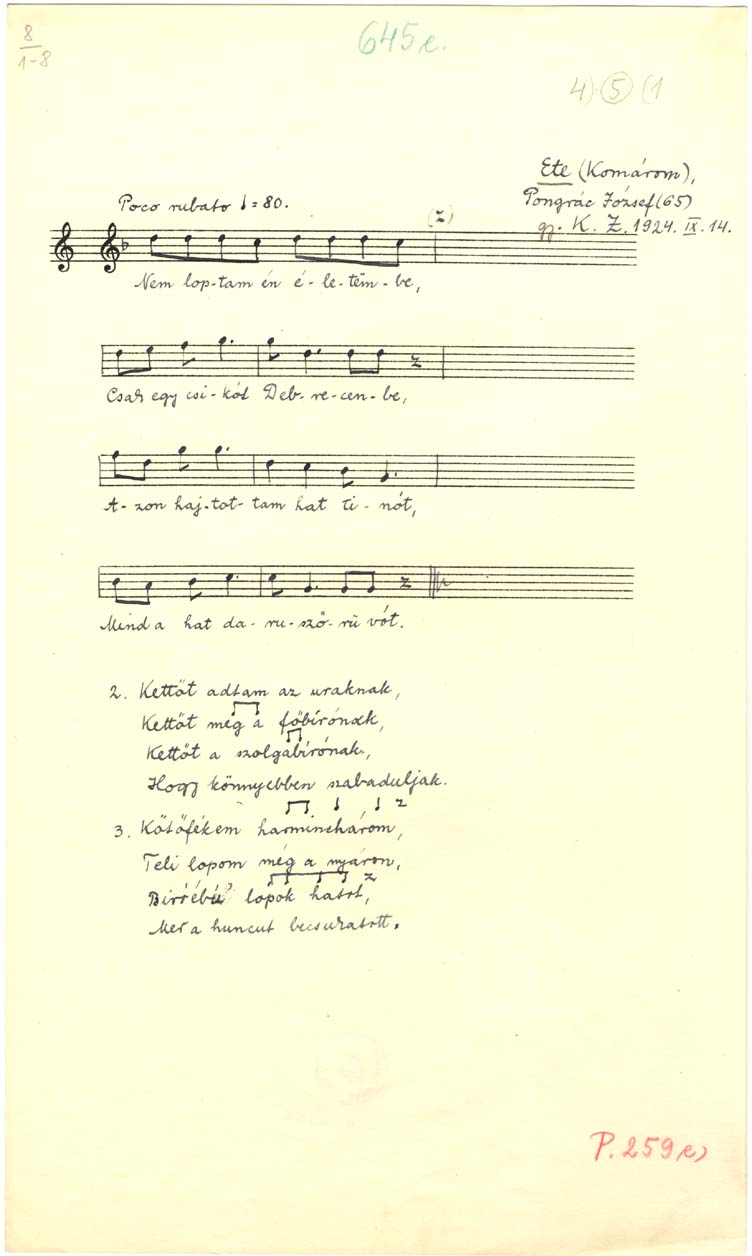 8
1-8
645e.
4) (5) (1
Ete (Komárom),
Pongrác József (65)
gy. K. Z. 1924. IX. 14.
Poco rubato ♩ = 80.
Nem lop-tam én é-le-tëm-be,
Csak egy csi-kót Deb-re-cen-be,
A-zon haj-tot-tam hat ti-nót,
Mind a hat da-ru-ször-rü vót.
2. Kettőt adtam az uraknak,
Kettőt még a főbírónak,
Kettőt a szolgabírónak,
Hogy könnyebben szabaduljak.
3. Kötőfékem harminchárom,
Teli lopom még a nyáron,
lopok hatot,
Mer a huncut becsukatott.
P. 259 e)